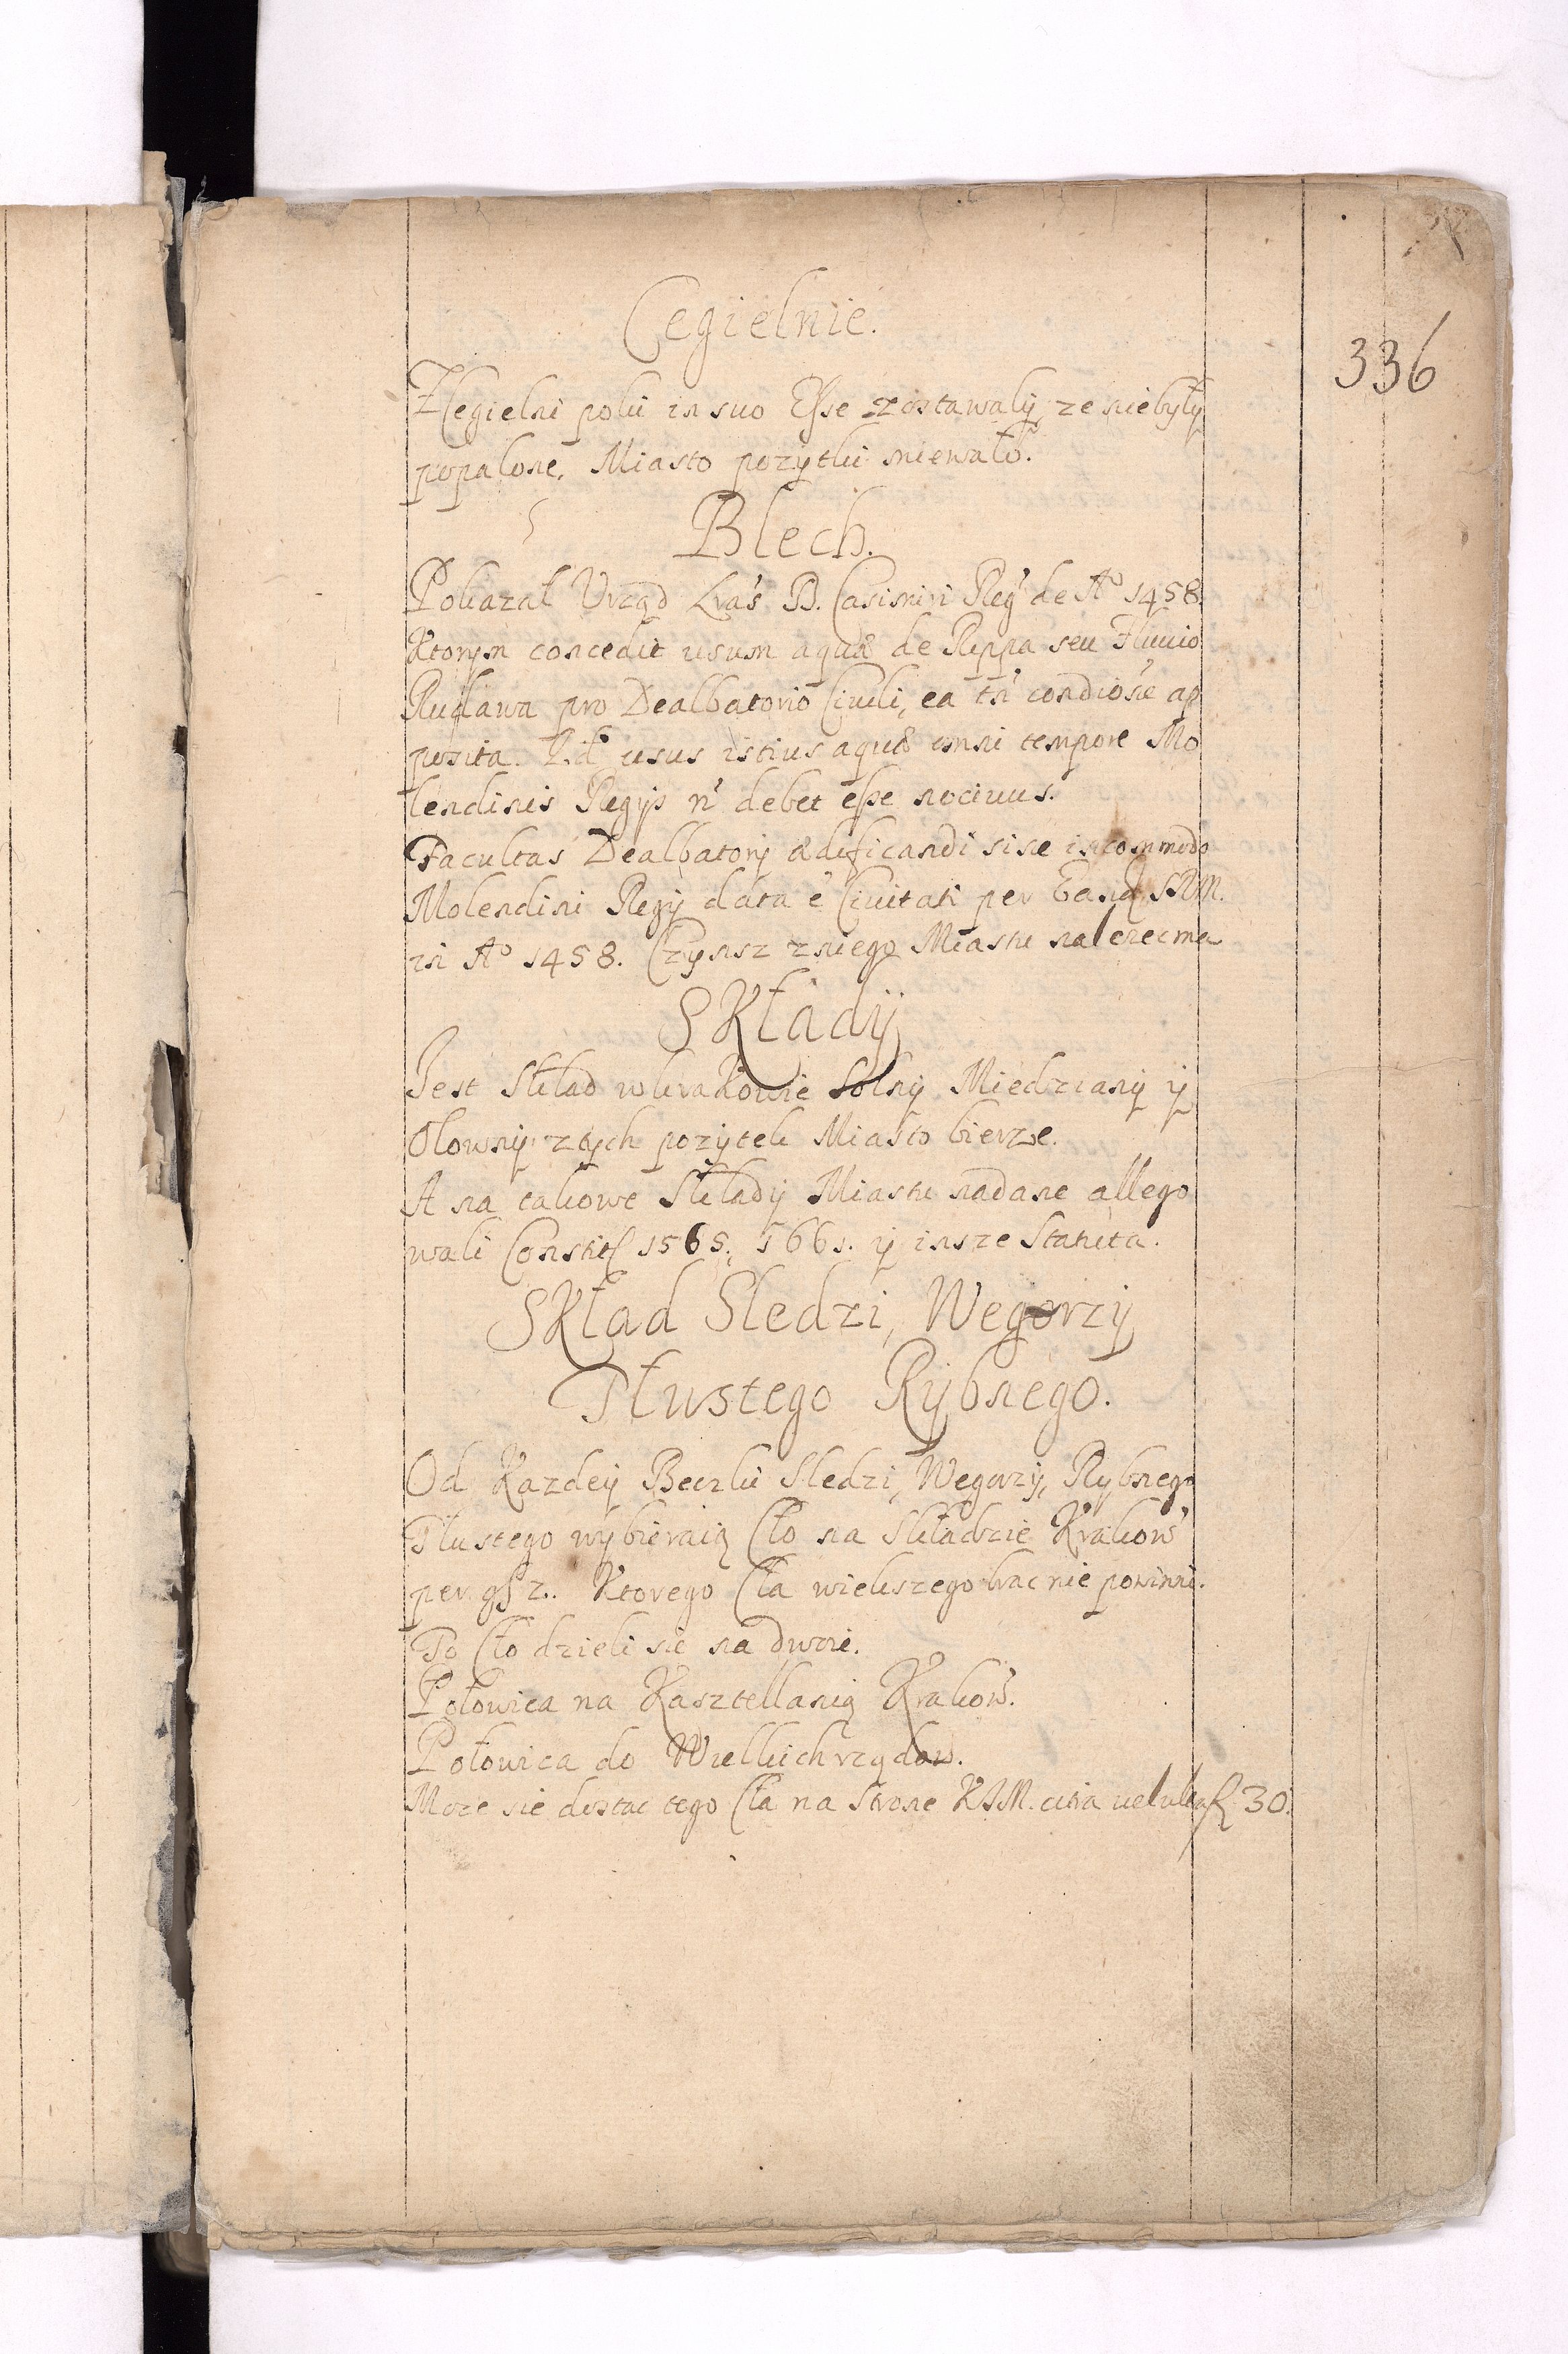 Cegielnie.
336
Z Cegielni poki in suo Esse zostawaly, ze niebyły
popalone, Miasto pozytki miewało.
Blech.
Pokazał Vrząd Lras B. Casimiri Reg de Ao 1458.
Ktorym concedit usum aquæ de Rippa seu Fluuio
Rudawa pro Dealbatorio Ciuili, ea tn condiõne ap
posita. Qd usus istius aquæ omni tempore Mo
lendinis Regijs n debet esse nociuus.
Facultas Dealbatorij ædificandi sine incommodo
Molendini Regij data e Ciuitati per Eand SRM.
in Ao 1458. Czynsz zniego Miastu nalezec ma
SKłady
Jest Skład wkrakowie Solny Miedziany y
Olowny ztych pozytek Miasto bierze.
A na takowe Składy Miastu nadane allego
wali Constit 1565. 1661. y insze Statuta.
SKład Sledzi, Wegorzy
Tłustego Rybnego.
Od Kazdey Beczki Sledzi, Wegorzy, Rybnego
Tlustego wybieraią Cło na Składzie Krakow
per gs 2. Ktorego Cła wiekszego brac nie powinni.
To Cło dzieli sie na dwoie.
Połowica na Kasztellanią Krakow.
Połowica do Wielkichrządow.
Moze sie dostac tego Cła na strone KJM. citra uel ultra fl 30.